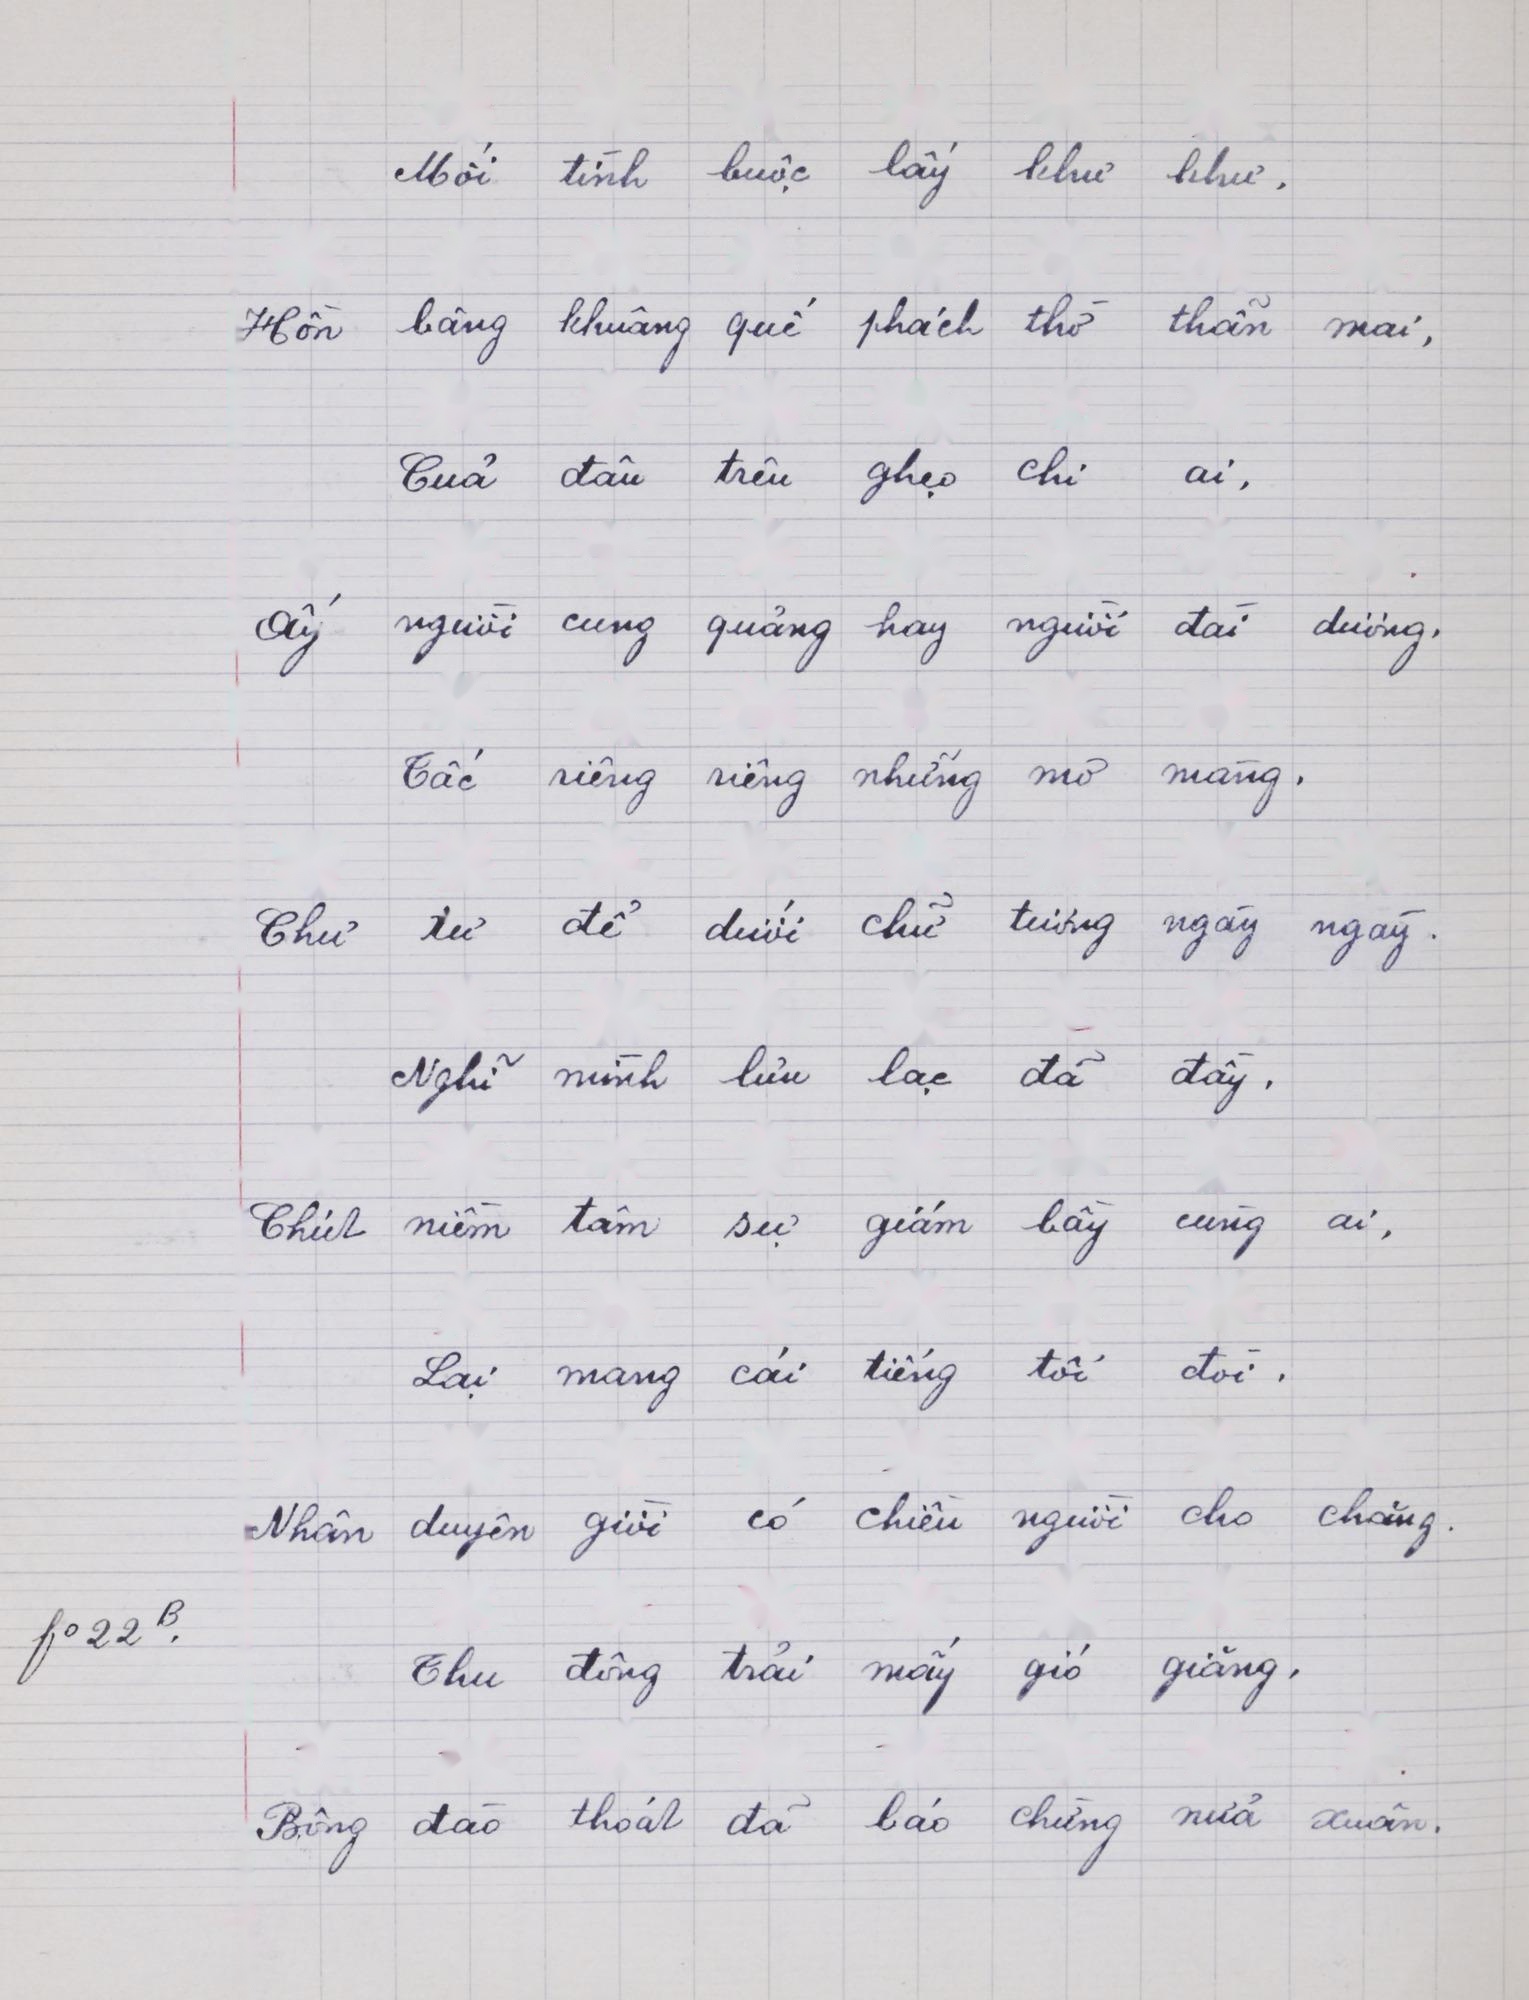 Mối tình buộc lấy khư khư.
Hồn bâng khuâng quế phách thờ thẫn mai,
Cuả đâu trêu ghẹo chi ai,
Ấy người cung quảng hay người đài dương.
Tấc riêng riêng những mơ màng.
Thư từ để dưới chữ tương ngày ngày.
Nghĩ mình lưu lạc đã đầy,
Chút niềm tâm sự giám bầy cùng ai,
Lại mang cái tiếng tôi đòi.
Nhân duyên giời có chiều người cho chăng.
fº 22 B.
Thu đông trải mấy gió giăng,
Bông đào thoát đã báo chừng nửa xuân.